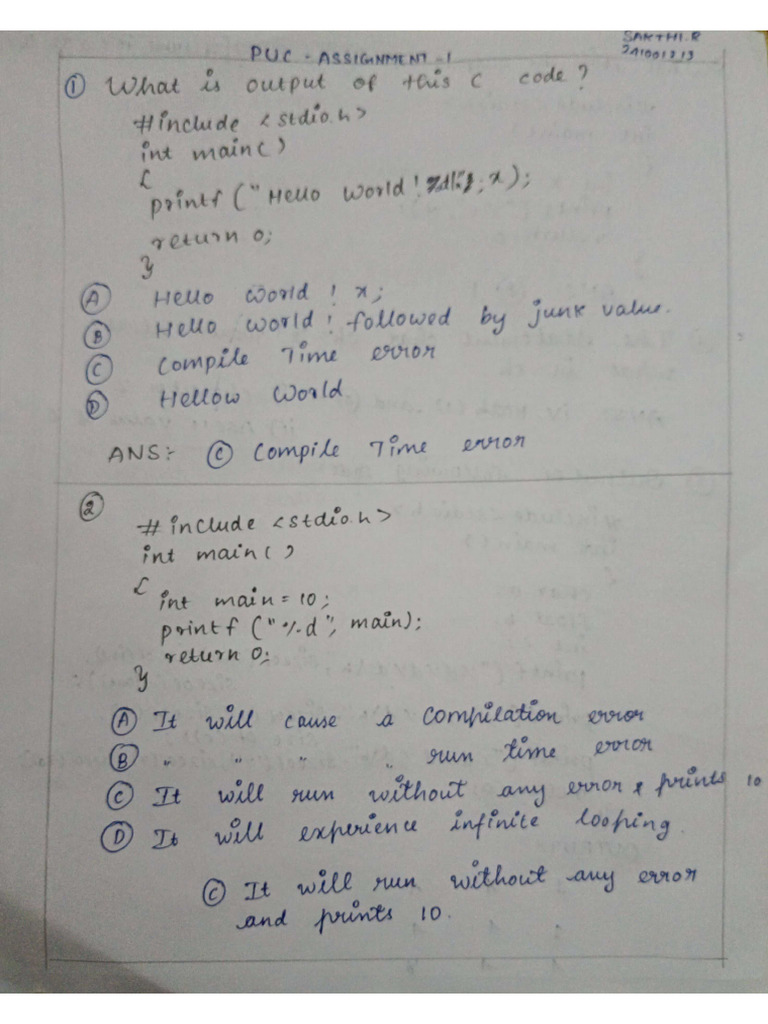 SAKTHI.R
241001213
PUC - ASSIGNMENT - 1
① What is output of this C code?
#include <stdio.h>
int main()
{
printf ("Hello World! x);
return 0;
}
Ⓐ Hello World ! x;
Ⓑ Hello World! followed by junk value.
Ⓒ Compile Time error
Ⓓ Hellow World
ANS:- Ⓒ Compile Time error
②
#include <stdio.h>
int main()
{ int main=10;
printf ("%d", main);
return 0;
}
Ⓐ It will cause a Compilation error
Ⓑ " " " " run time error
Ⓒ It will run without any error & prints 10
Ⓓ It will experience infinite looping.
Ⓒ It will run without any error
and prints 10.